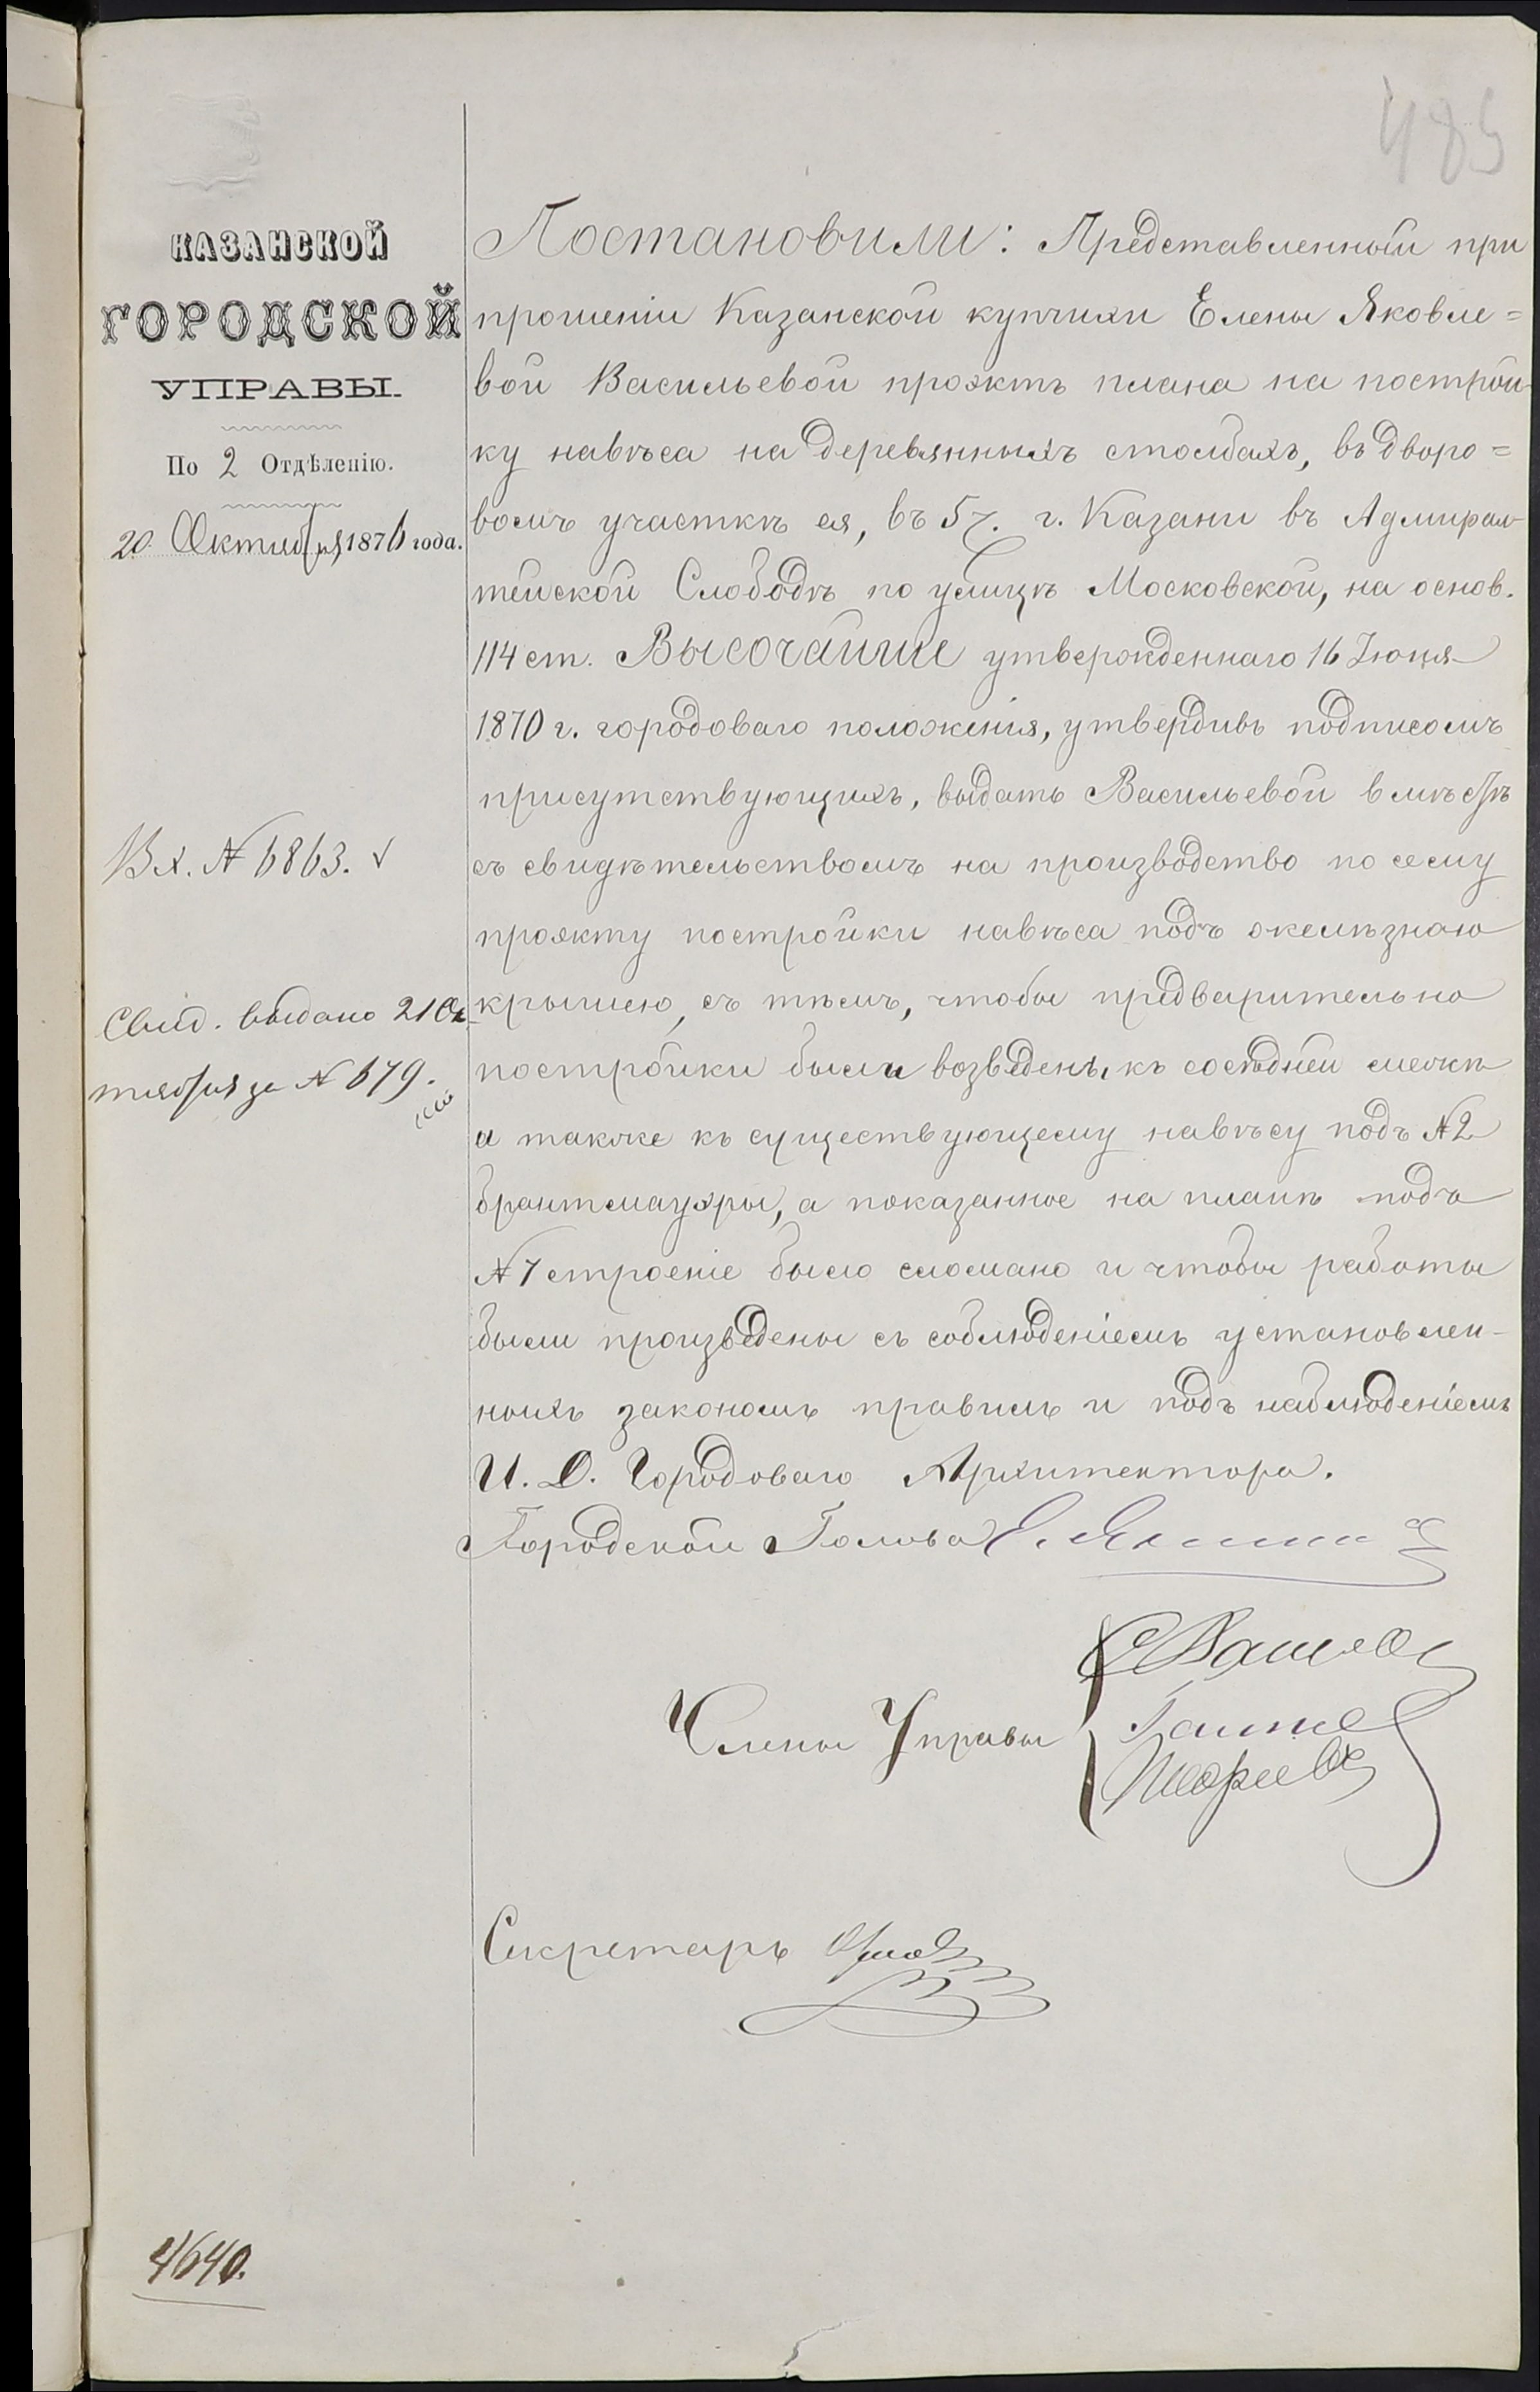 485
КАЗАНСКОЙ
ГОРОДСКОЙ
УПРАВЫ.
По 2 Отдѣленію.
20 Октября 1876 года.
Вх. № 6863.
Свид. выдано 21 Ок-
тября за № 679.
Постановили: Представленный при
прошеніи Казанской купчихи Елены Яковле=
вой Васильевой проэктъ плана на построй-
ку навѣса на деревянныхъ столбахъ, въ дворо=
вомъ участкѣ ея, въ 5 ч. г. Казани въ Адмирал-
тейской Слободѣ по улицѣ Московской, на основ.
114 ст. Высочайше утвержденнаго 16 Іюня
1870 г. городоваго положенія, утвердивъ подписомъ
присутствующихъ, выдать Васильевой вмѣстѣ
съ свидѣтельствомъ на производство по сему
проэкту постройки навѣса подъ желѣзною
крышею, съ тѣмъ, чтобы предварительно
постройки были возведены къ сосѣдней межѣ
а также къ существующему навѣсу подъ № 2
брантмауэры, а показанное на планѣ подъ
№ 7 строеніе было сломано и чтобы работы
были произведены съ соблюденіемъ установлен-
ныхъ закономъ правилъ и подъ наблюденіемъ
И. Д. Городоваго Архитектора.
Городской Голова Е. Янишъ
Члены Управы
Секретарь
4640.